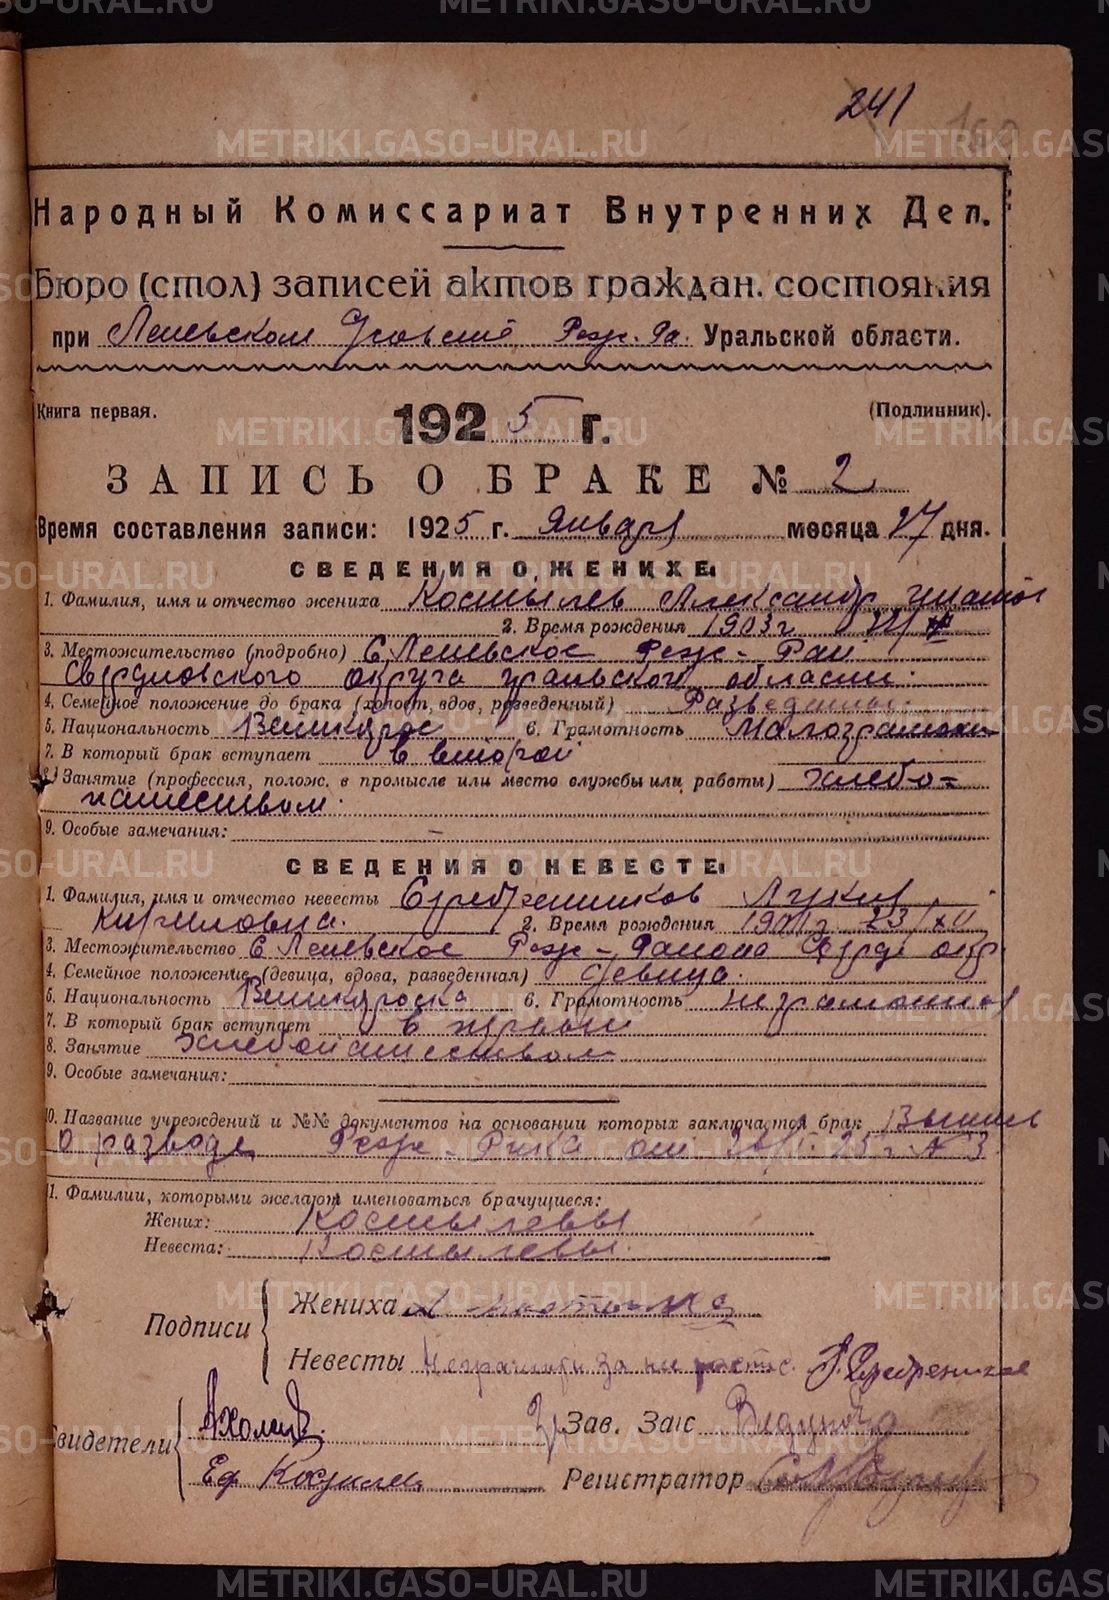 241
Народный Комиссариат Внутренних Дел.
Бюро (стол) записей актов граждан. состояния
при Леневском Резж. Ра. Уральской области.
Книга первая. (Подлинник).
1925 г.
ЗАПИСЬ О БРАКЕ № 2
Время составления записи: 1925 г. Января месяца 27 дня.
СВЕДЕНИЯ О ЖЕНИХЕ
1. Фамилия, имя и отчество жениха Костылев Александр
2. Время рождения 1903 г
3. Местожительство (подробно) С. Леневское Реж - Рай
Свердловского округа уральской области.
4. Семейное положение до брака (холост, вдов, разведенный) Разведенный
5. Национальность Великорос 6. Грамотность Малограмотн
7. В который брак вступает в второй
8. Занятие (профессия, полож. в промысле или место службы или работы) хлебо-
пашеством.
9. Особые замечания: –
СВЕДЕНИЯ О НЕВЕСТЕ
1. Фамилия, имя и отчество невесты
Кириловна. 2. Время рождения 23/XII
3. Местожительство С Леневское Реж - Района Сверд окр
4. Семейное положение (девица, вдова, разведенная) девица.
5. Национальность Великороска 6. Грамотность неграмотная
7. В который брак вступает в первый
8. Занятие Хлебопашеством
9. Особые замечания:
10. Название учреждений и №№ документов на основании которых заключается брак
о разводе Реж - Рика от 25 г № 3
11. Фамилии, которыми желают именоваться брачущиеся:
Жених: Костылевы
Невеста: Костылевы.
Подписи
Жениха
Невесты за ни
Свидетели
Зав. Загс
Регистратор
METRIKI.GASO-URAL.RU